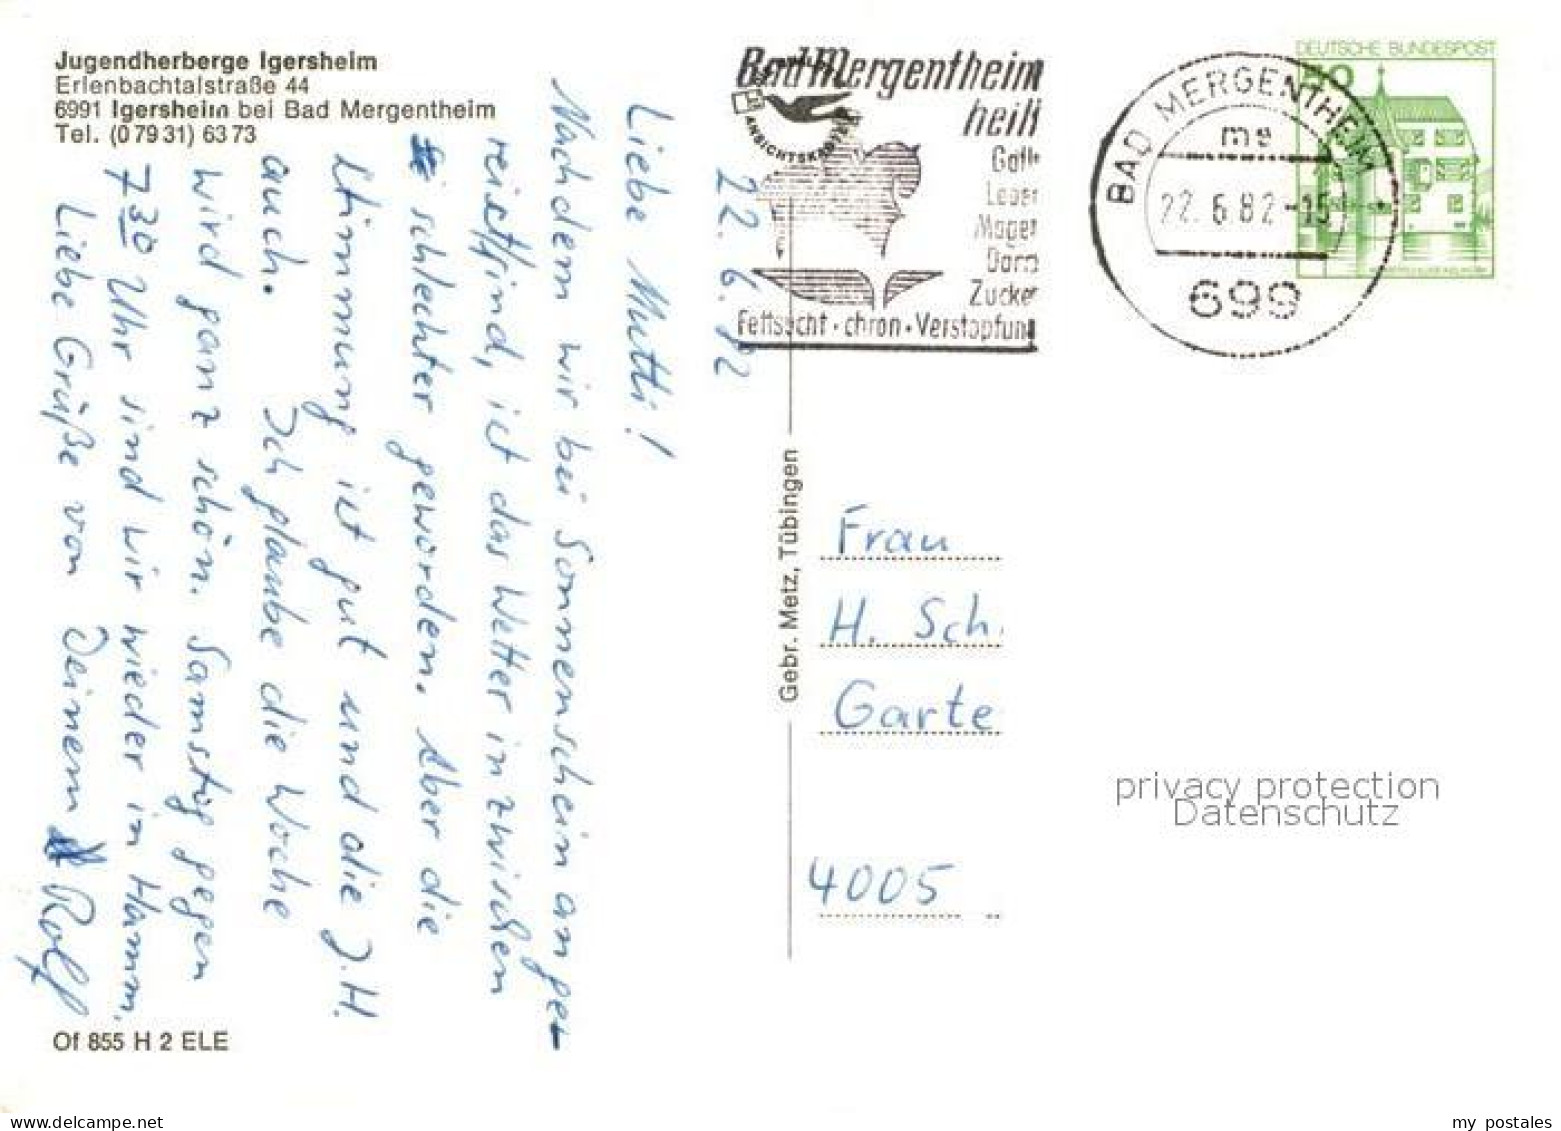 Jugendherberge Igersheim
Erlenbachtalstraße 44
6991 Igersheim bei Bad Mergentheim
Tel. (0 79 31) 63 73
22.6.82
Liebe Mutti!
Nachdem wir bei Sonnenschein ange-
reist sind, ist das Wetter inzwischen
schlechter geworden. Aber die
Stimmung ist gut und die J.H.
auch. Ich glaube die Woche
wird ganz schön. Samstag gegen
7 30 Uhr sind wir wieder in Hamm.
Liebe Grüße von Deinem Rolf
Of 855 H 2 ELE
Gebr. Metz, Tübingen
Bad Mergentheim
heilt
Galle
Leber
Magen
Darm
Zucker
Fettsucht · chron · Verstopfung
ANSICHTSKARTEN
BAD MERGENTHEIM
me
22.6.82-15
699
DEUTSCHE BUNDESPOST
50
Frau
H. Sch
Garte
4005
privacy protection
Datenschutz
my postales